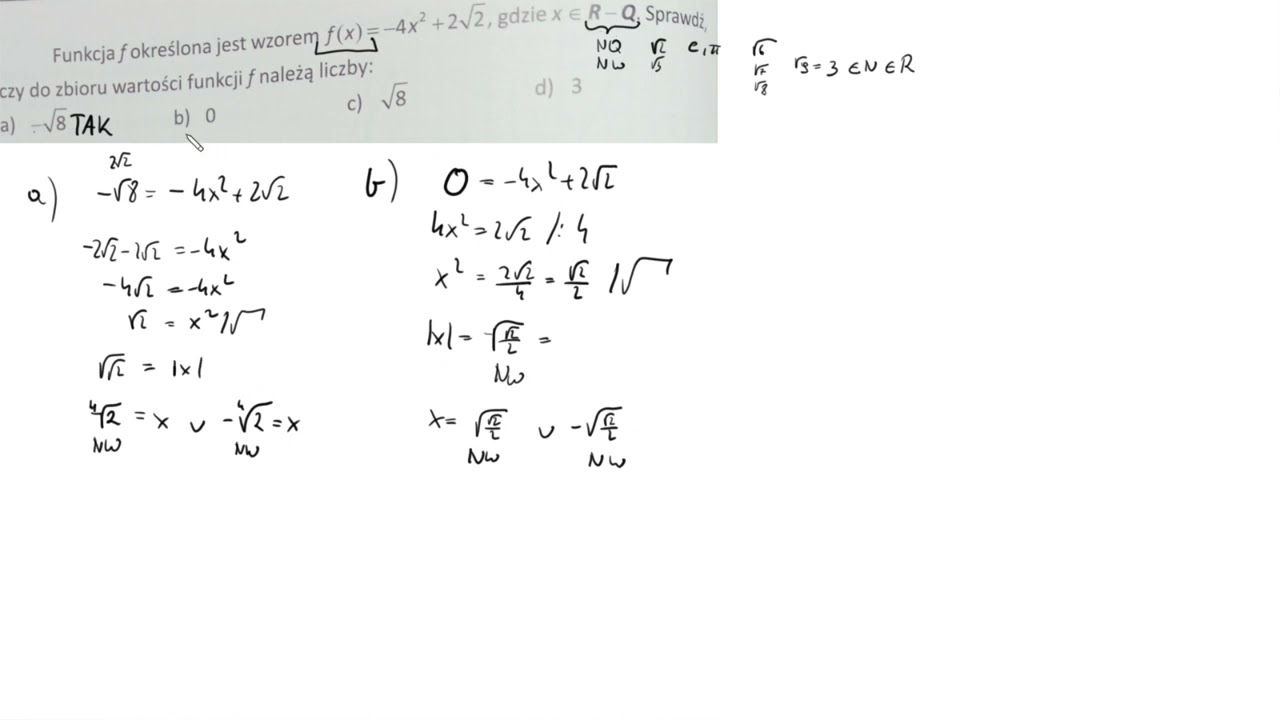 Funkcja f określona jest wzorem f(x) = −4x² + 2√2, gdzie x ∈ R − Q. Sprawdź,
NQ √2 e, π √6
NW √5 √7 √9 = 3 ∈ N ∈ R
√8
czy do zbioru wartości funkcji f należą liczby:
a) −√8 TAK b) 0 c) √8 d) 3
a)
2√2
−√8 = −4x² + 2√2
−2√2 − 2√2 = −4x²
−4√2 = −4x²
√2 = x² /√
√√2 = |x|
⁴√2 = x ∪ −⁴√2 = x
NW NW
b) 0 = −4x² + 2√2
4x² = 2√2 /: 4
x² = 2√2/4 = √2/2 /√
|x| = √(√2/2) =
NW
x = √(√2/2) ∪ −√(√2/2)
NW NW